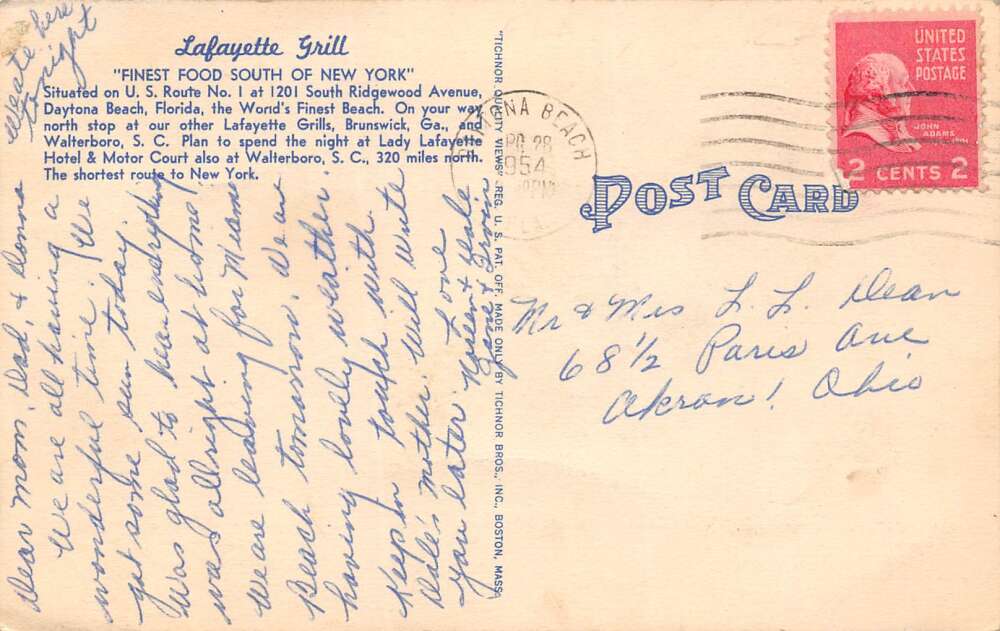 We ate here
tonight
Lafayette Grill
"FINEST FOOD SOUTH OF NEW YORK"
Situated on U. S. Route No. 1 at 1201 South Ridgewood Avenue,
Daytona Beach, Florida, the World's Finest Beach. On your way
north stop at our other Lafayette Grills, Brunswick, Ga., and
Walterboro, S. C. Plan to spend the night at Lady Lafayette
Hotel & Motor Court also at Walterboro, S. C., 320 miles north.
The shortest route to New York.
Dear Mom, Dad, & Donna
We are all having a
wonderful time. We
got some sun today.
Was glad to hear everything
was allright at home.
We are leaving for Miami
Beach tomorrow. We are
having lovely weather.
Keep in touch with
Dale's mother. Will write
you later. Love
& Dale
Jane & Irvin
"TICHNOR QUALITY VIEWS" REG. U. S. PAT. OFF. MADE ONLY BY TICHNOR BROS., INC., BOSTON, MASS.
POST CARD
DAYTONA BEACH
APR 28
1954
FLA.
UNITED
STATES
POSTAGE
JOHN
ADAMS
2 CENTS 2
Mr & Mrs L. L. Dean
68 1/2 Paris Ave
Akron, Ohio